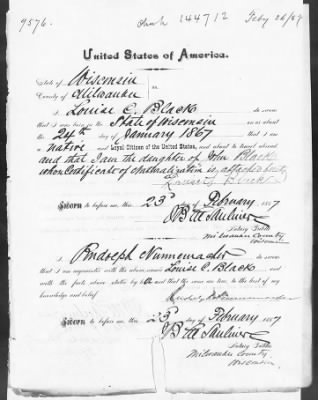 9576.
144712
Feby 26/87
United States of America.
State of Wisconsin
County of Milwaukee } ss.
I Louise C. Black do swear
that I was born in the State of Wisconsin on or about
the 24th day of January 1867 that I am
a native and Loyal Citizen of the United States, and about to travel abroad
and that I am the daughter of John Black
whose Certificate of Naturalization is
Louise C. Black
Sworn to before me, this 23d day of February 1887
Notary Public
Milwaukee County
Wisconsin
I Rudolph Nunnemacher do swear
that I am acquainted with the above named Louise C. Black and
with the facts above stated by her and the same are true, to the best of my
knowledge and belief.
Rudolph Nunnemacher
Sworn to before me, this 23d day of February 1887
Notary Public
Milwaukee County
Wisconsin